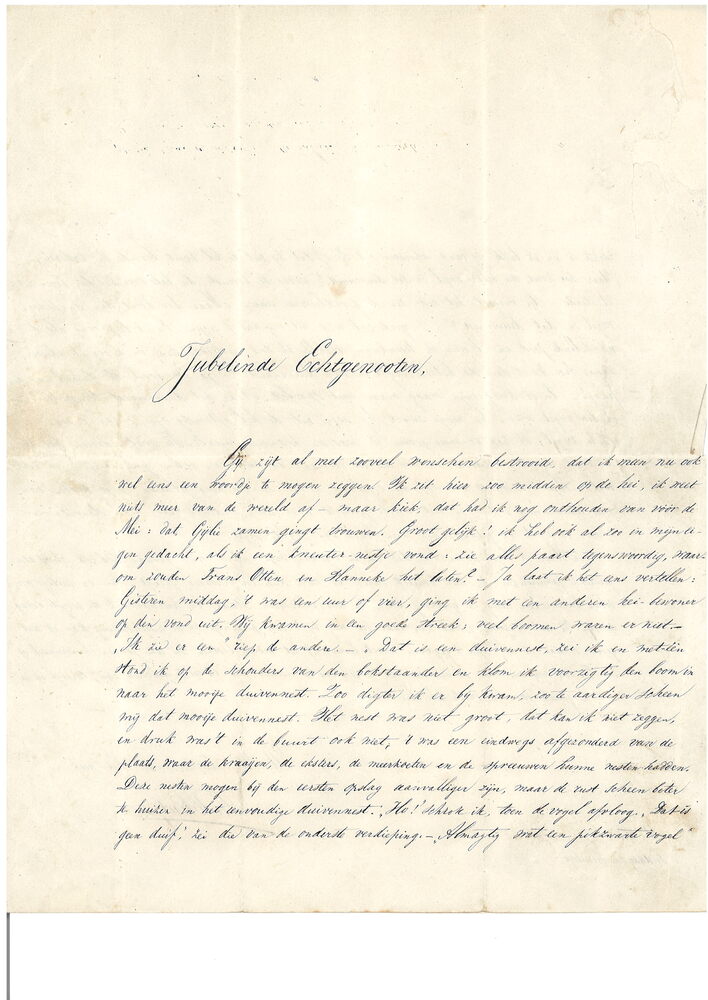 Jubelinde Echtgenooten,
Gij zijt al met zooveel wenschen bestrooid, dat ik meen nu ook
wel eens een woordje te mogen zeggen. Ik zit hier zoo midden op de hei, ik weet
niets meer van de wereld af – maar kiek, dat had ik nog onthouden van vóór de
Mei: dat Gijlie zamen gingt trouwen. Groot gelijk! ik heb ook al zoo in mijn ei-
gen gedacht, als ik een kneuter-nestje vond: zie alles paart tegenswoordig, waar-
om zouden Frans Otten en Hanneke het laten? – Ja laat ik het eens vertellen:
Gisteren middag, 't was een uur of vier, ging ik met een anderen hei-bewoner
op den vond uit. Wij kwamen in een goede streek; veel boomen waren er niet. –
„Ik zie er een” riep de andere. – „Dat is een duivennest, zei ik en met-één
stond ik op de schouders van den bokstaander en klom ik voorzigtig den boom in
naar het mooije duivennest. Zoo digter ik er bij kwam, zoo te aardiger scheen
mij dat mooije duivennest. Het nest was niet groot, dat kan ik niet zeggen,
en druk was 't in de buurt ook niet, 't was een eindwegs afgezonderd van de
plaats, waar de kraaijen, de eksters, de merkoelen en de spreeuwen hunne nesten hadden.
Deze nesten mogen bij den eersten opslag aanvalliger zijn, maar de rust scheen beter
te huizen in het eenvoudige duivennest. „Ho! schrok ik, toen de vogel afvloog. „Dat is
geen duif,” zei die van de onderste verdieping. – „Almagtig wat een pikzwarte vogel”